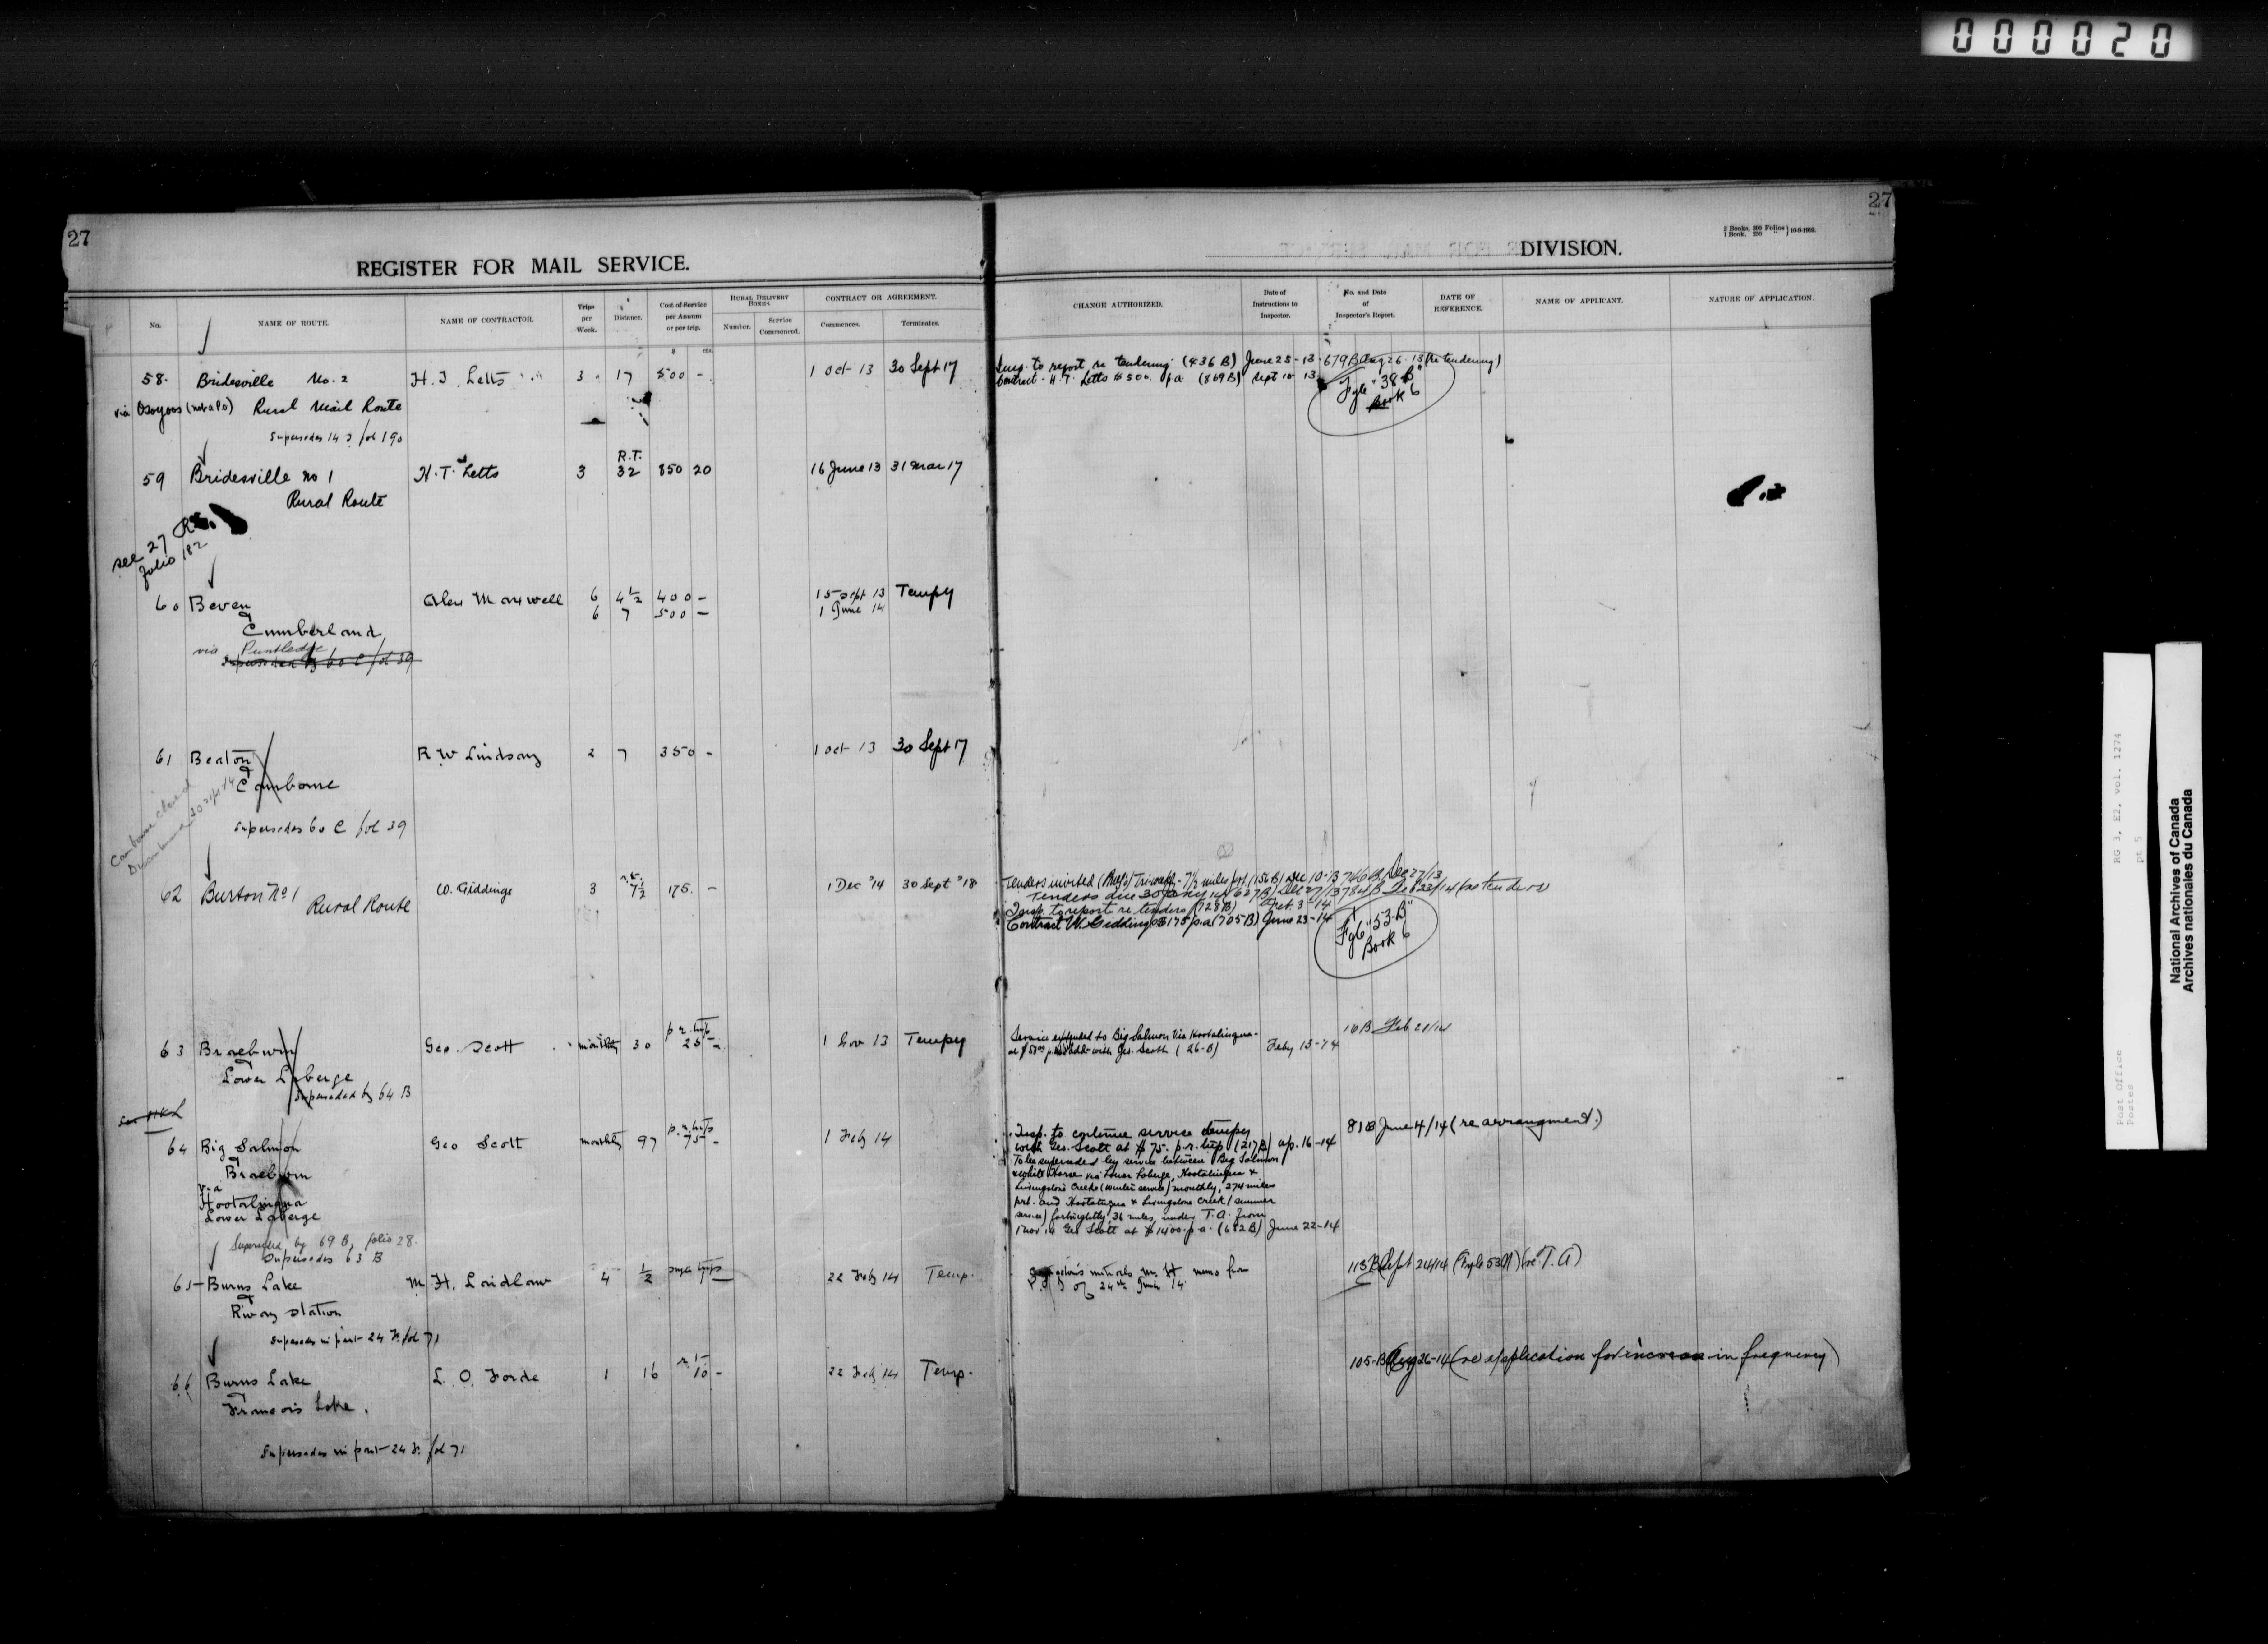 000020
27
27
REGISTER FOR MAIL SERVICE.
DIVISION.
2 Books, 300 Folios
1 Book, 250 " } 10-9-1909.
No. NAME OF ROUTE. NAME OF CONTRACTOR. Trips per Week. Distance. Cost of Service per Annum or per trip. RURAL DELIVERY BOXES. Number. Service Commenced. CONTRACT OR AGREEMENT. Commences. Terminates.
CHANGE AUTHORIZED. Date of Instructions to Inspector. No. and Date of Inspector's Report. DATE OF REFERENCE. NAME OF APPLICANT. NATURE OF APPLICATION.
$ cts.
58. Bridesville No. 2 H. T. Letts 3 17 500 - 1 Oct 13 30 Sept 17
via Osoyoos (not a PO) Rural Mail Route
Supersedes 14 fol 190
Insp. to report re tendering (436 B) June 25-13 679 B Aug 26 13 (re tendering)
Contract - H. T. Letts $500. p.a. (869 B) Sept 10 13
Fyle "38 B"
Book 6
59 Bridesville No 1 H. T. Letts 3 R.T. 32 850 20 16 June 13 31 Mar 17
Rural Route
see 27
folio 182
60 Beven Alex Maxwell 6 4½ 400 - 15 Sept 13 Tempy
& 6 7 500 - 1 June 14
Cumberland
via Puntledge
Superseded by 60 C fol 39
61 Beaton R W Lindsay 2 7 350 - 1 Oct 13 30 Sept 17
&
Camborne
Camborne closed
Supersedes 60 C fol 39
62 Burton No 1 W. Giddings 3 r.t. 7½ 175. - 1 Dec '14 30 Sept '18
Rural Route
Tenders invited Tri-weekly - 7½ miles p.r.t. (156 B) Dec 10-13 766 B Dec 27/13
Tenders due 30 Jany 14 (627 B) Dec 27/13 784 B Feb 23/14 (re tenders)
Insp. to report re tenders (728 B) Feb. 3-14
Contract W. Giddings $175 p.a (705 B) June 23-14
Fyle "53-B"
Book 6
63 Braeburn Geo. Scott monthly 30 p r. trip 25 - 1 Nov 13 Tempy
Lower Laberge
Superseded by 64 B
Service extended to Big Salmon via Hootalinqua -
with Geo. Scott (26-B) Feby 13-14
16 B Feb 21/14
64 Big Salmon Geo Scott monthly 97 p.r. trip 75 - 1 Feb 14
&
Braeburn
via
Hootalinqua
Lower Laberge
Superseded by 69 B, folio 28.
Supersedes 63 B
Insp. to continue service tempy
with Geo. Scott at $75. p.r. trip (217 B) Ap. 16-14
To be superseded by service between Big Salmon
& White Horse via Lower Laberge, Hootalinqua &
Livingstone Creek (winter service) monthly, 274 miles
prt. and Hootalinqua & Livingstone Creek (summer
service) fortnightly, 36 miles, under T.A. from
1 Nov 14 Geo Scott at $1400. p.a. (682 B) June 22-14
81 B June 4/14 (re arrangment.)
65 Burns Lake M. H. Laidlaw 4 ½ 22 Feb 14 Temp.
&
Rwy Station
Supersedes in part 24 F. fol 71
24th June 14
113 B Sept 24/14 (re T.A)
66 Burns Lake L. O. Forde 1 16 r.t. 10 - 22 Feb 14 Temp.
&
Francois Lake.
Supersedes in part 24 F. fol 71
105-B Aug 26-14 (re application for increase in frequency)
Post Office RG 3, E2, vol. 1274
Postes pt 5
National Archives of Canada
Archives nationales du Canada